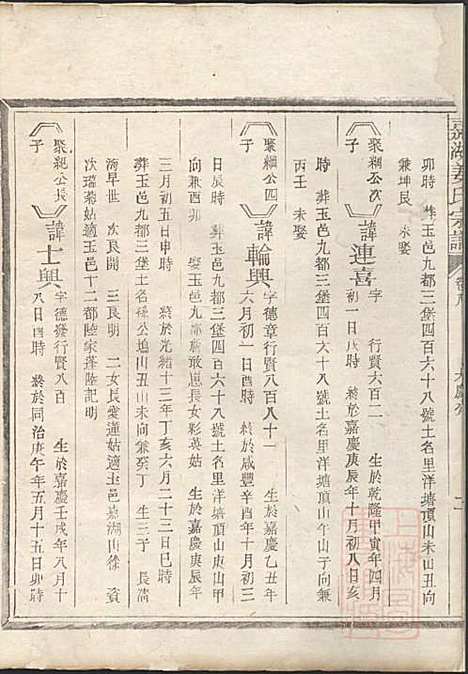 嘉湖姜氏宗譜
卯時　葬玉邑九都三堡四百六十八號土名里洋塘頂山未山丑向
兼坤艮　未娶
聚緦公次子
諱連喜
字　行賢六百二　生於乾隆甲寅年四月
初一日戌時　終於嘉慶庚辰年十月初八日亥
時　葬玉邑九都三堡四百六十八號土名里洋塘頂山午山子向兼
丙壬　未娶
聚緦公四子
諱輪興
字德章行賢八百八十一　生於嘉慶乙丑年
六月初一日酉時　終於咸豐辛酉年十月初三
日辰時　葬玉邑九都三堡四百六十八號土名里洋塘頂山庚山甲
向兼酉卯　娶玉邑九都詹敢崽長女彩英姑　生於嘉慶庚辰年
三月初五日申時　終於光緒十三年丁亥六月二十三日巳時
葬玉邑九都三堡土名祿公塢山丑山未向兼癸丁　生三子　長
濤早世　次良開　三良明　二女長愛蓮姑適玉邑嘉湖山徐
次瑞菊姑適玉邑十二都陸家蓬陸記明
聚緦公長子
諱士興
字德發行賢八百　生於嘉慶壬戌年八月十
八日酉時　終於同治庚午年五月十五日卯時